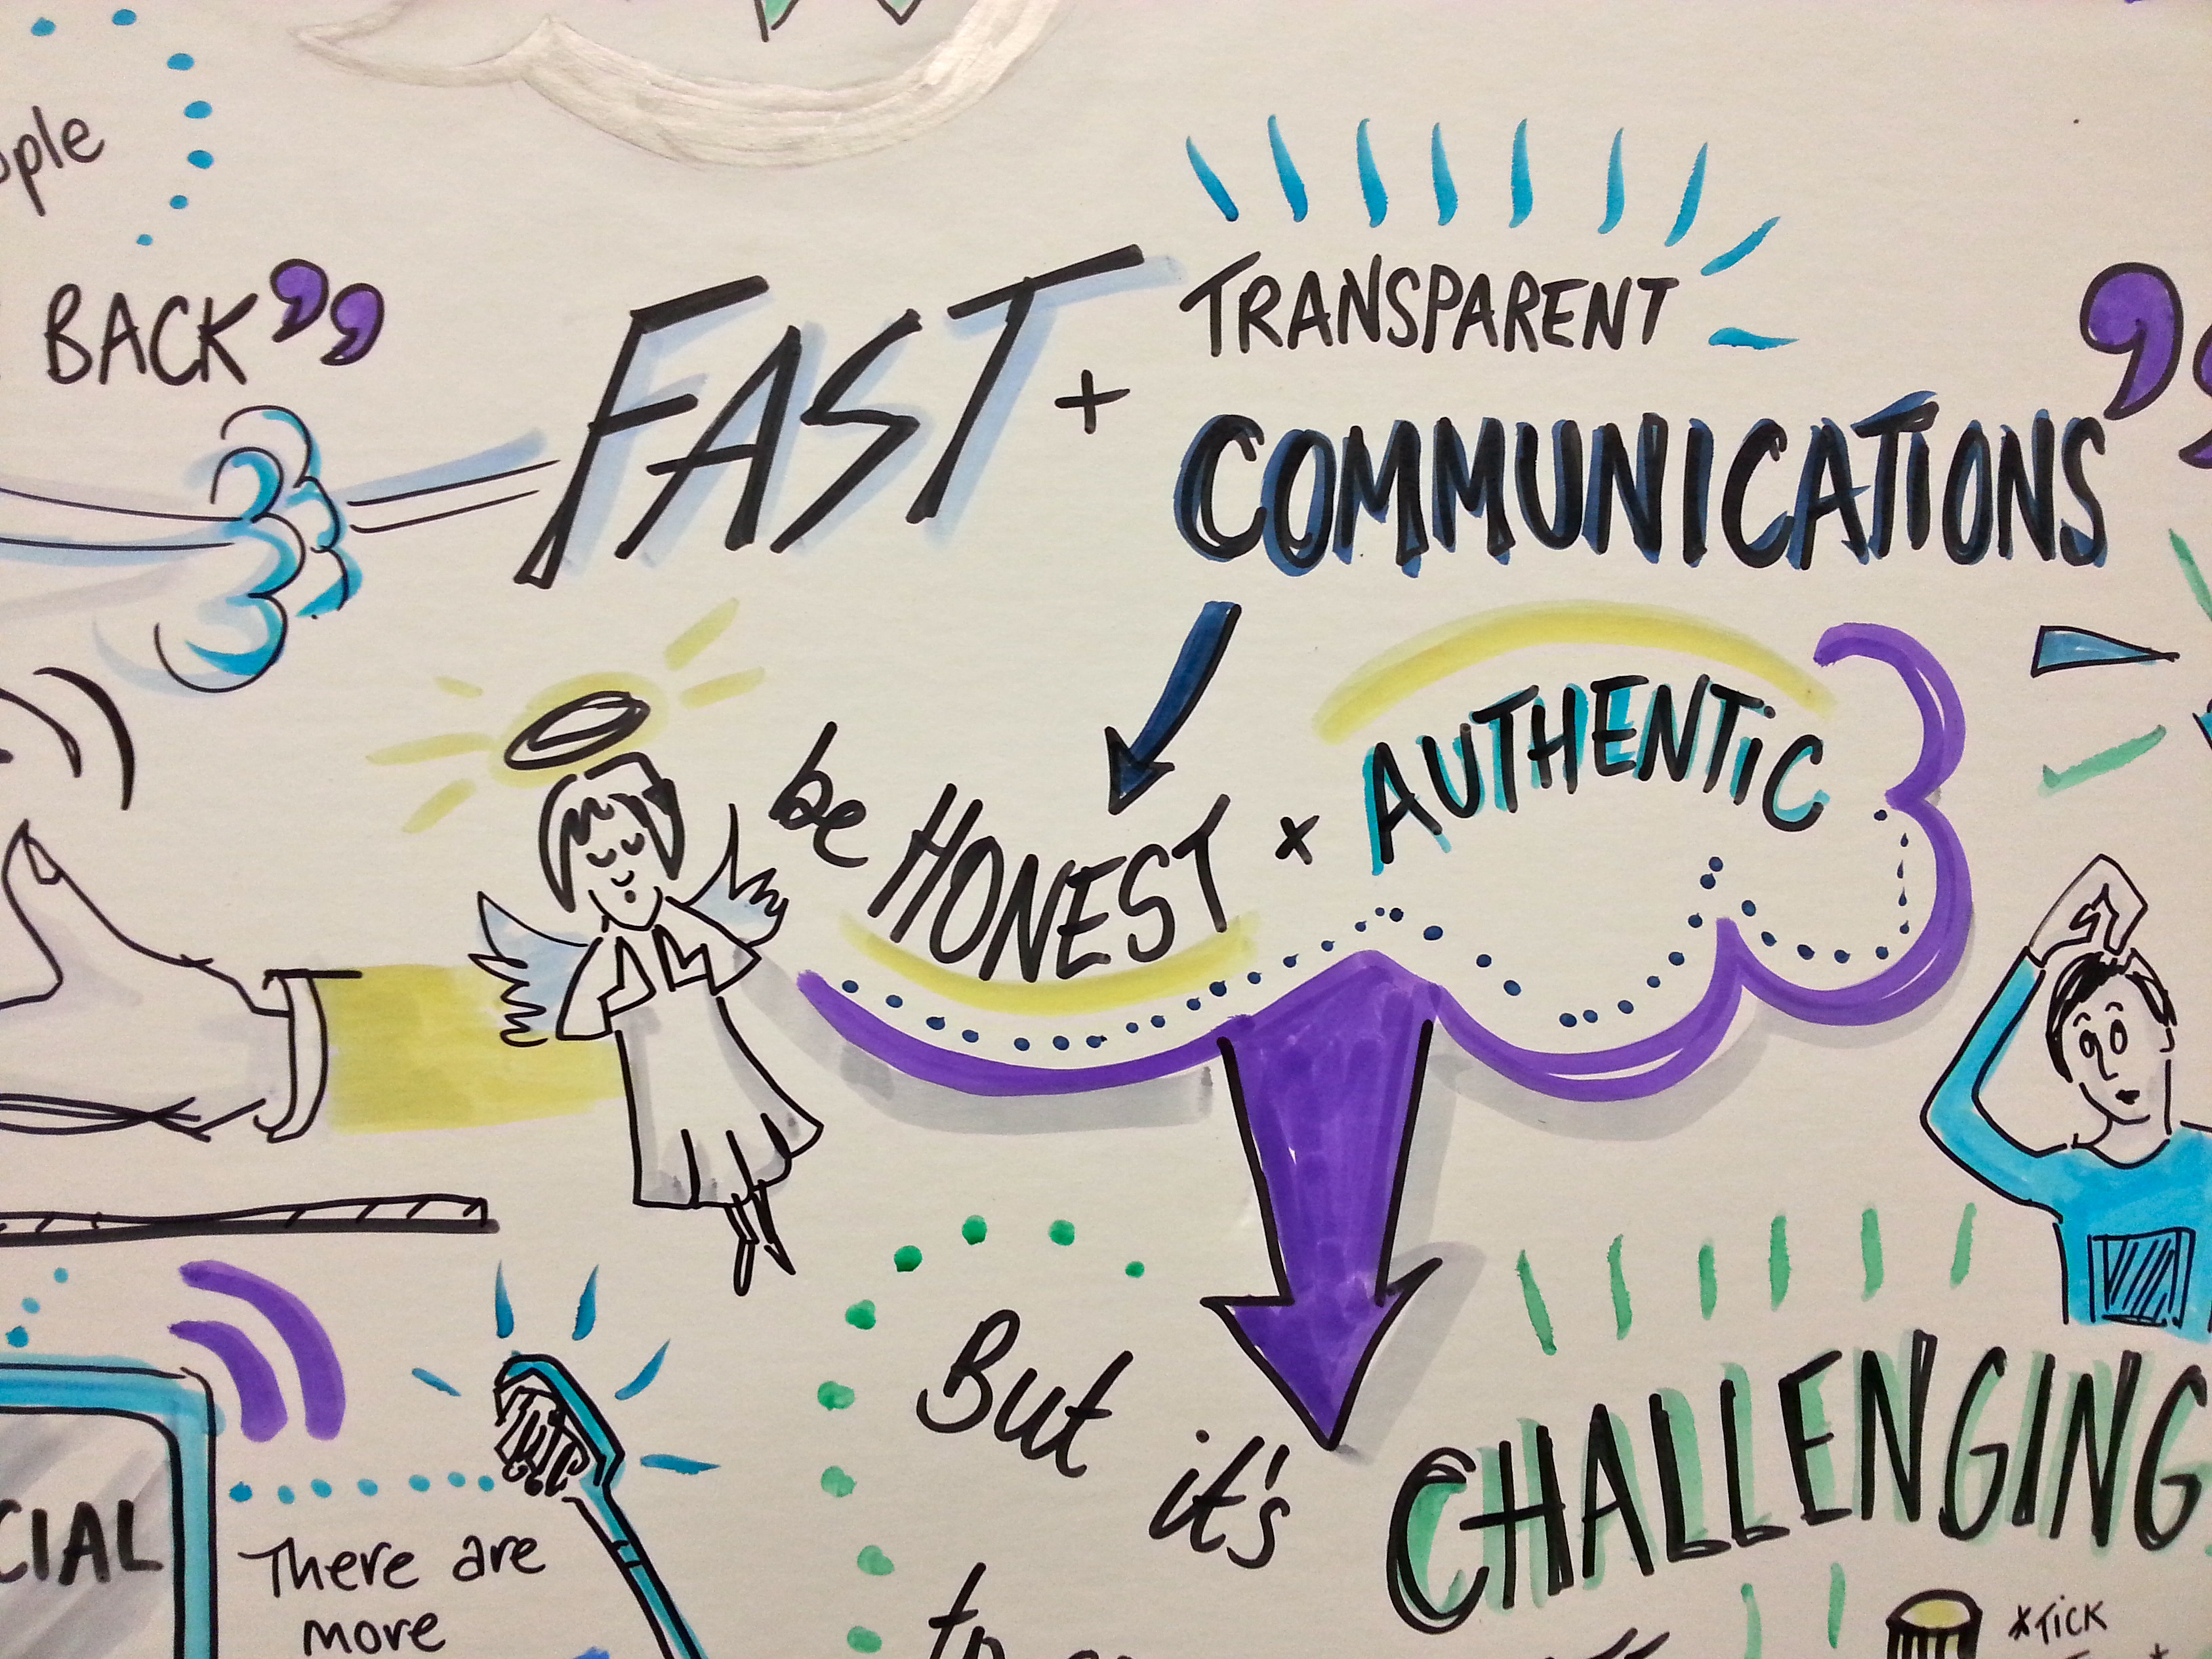 BACK”
FAST + TRANSPARENT
COMMUNICATIONS”
be HONEST + AUTHENTIC
But it's CHALLENGING
There are
more
*TICK